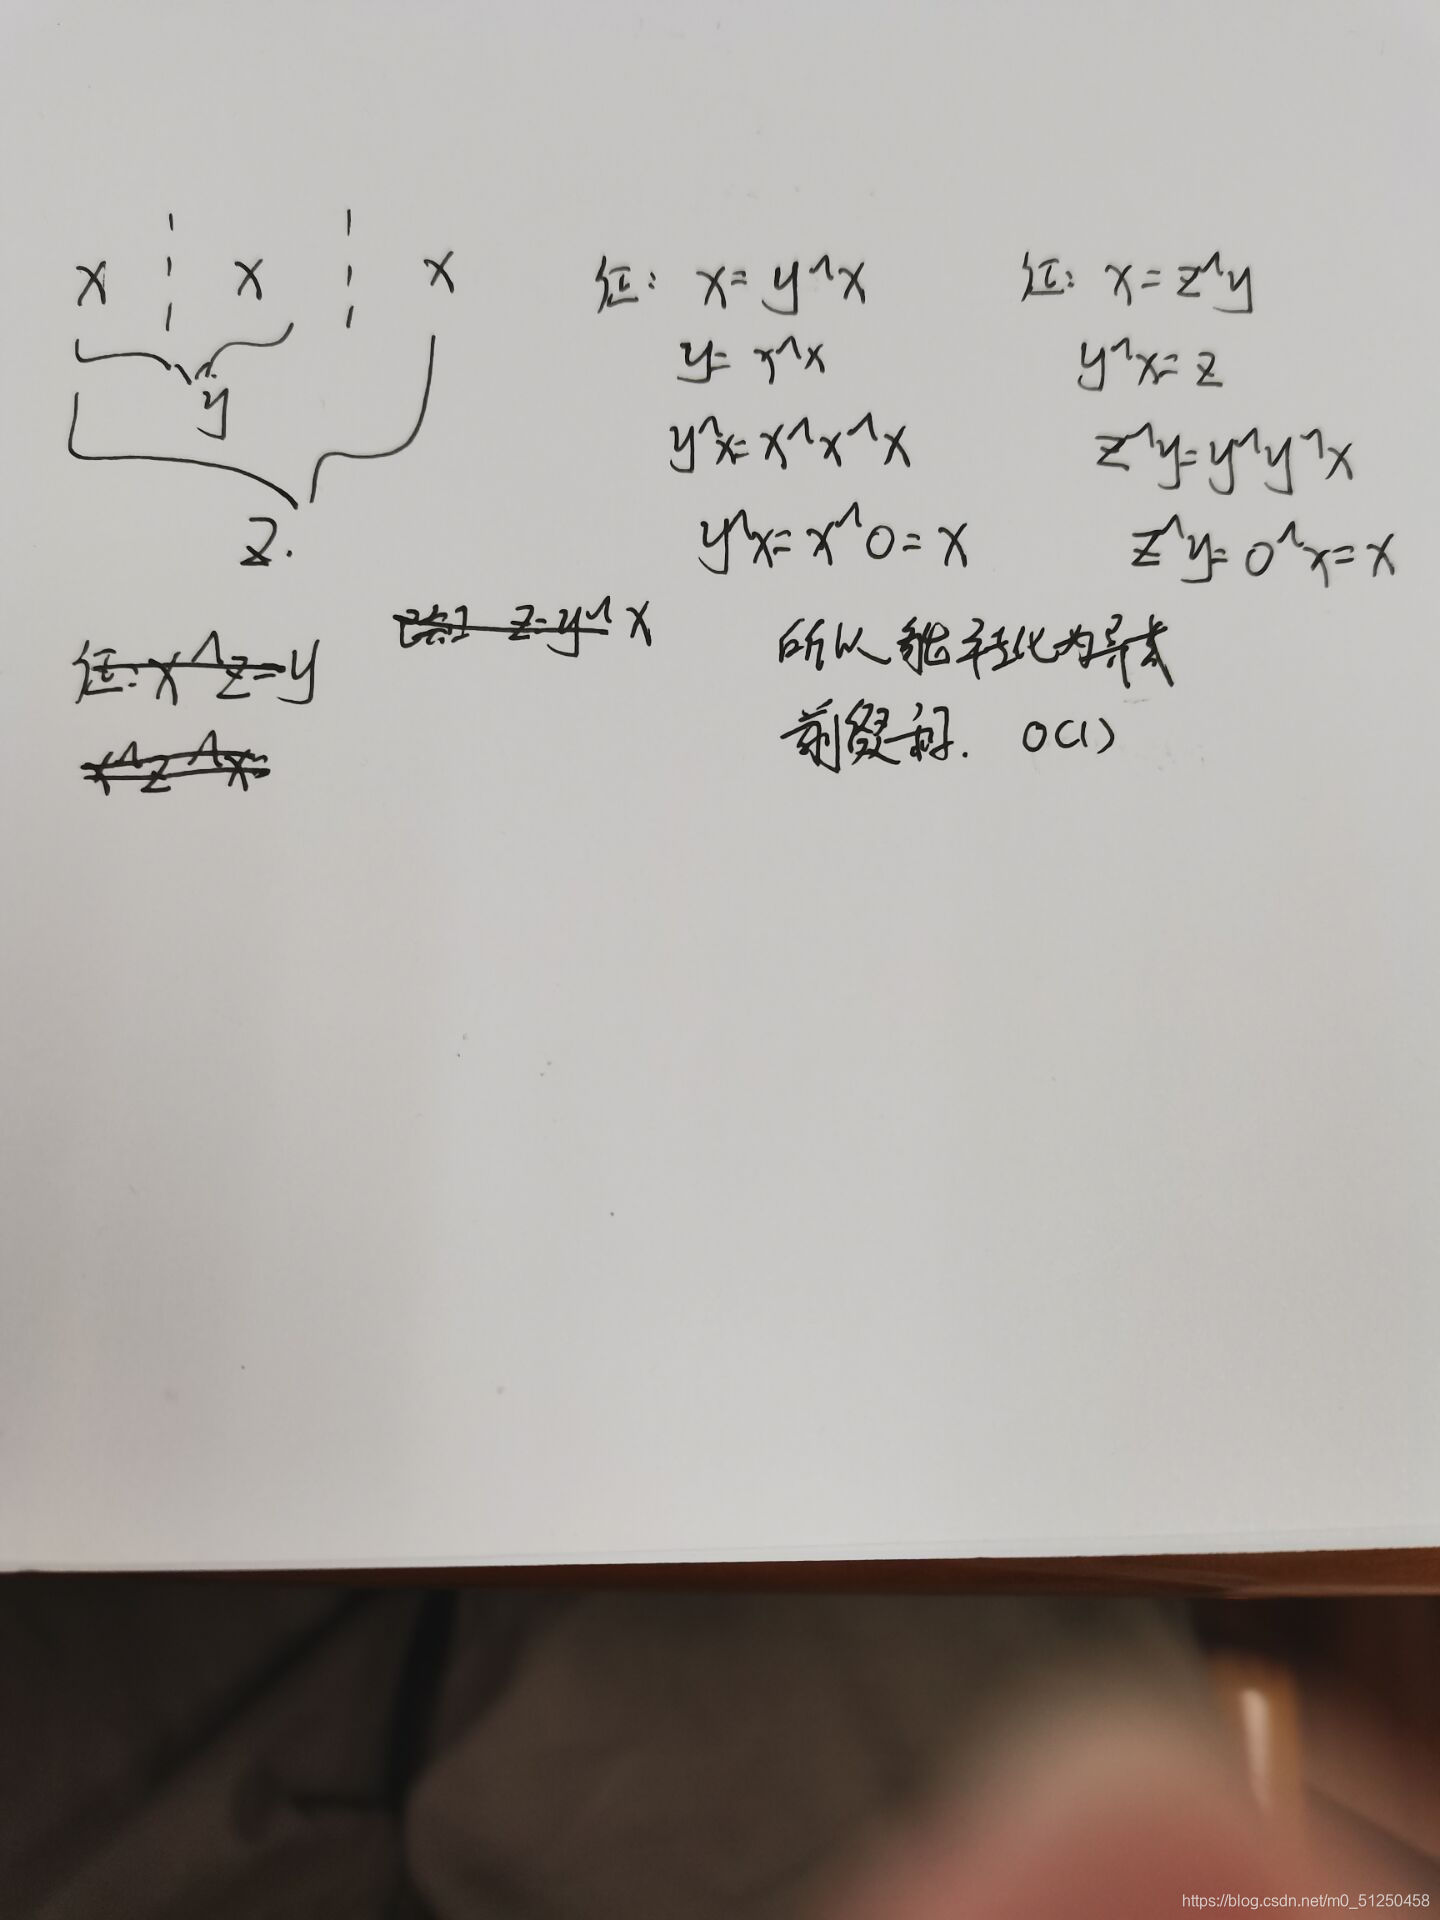 x x x
y
z.
证: x = y^x
y = x^x
y^x = x^x^x
y^x = x^0 = x
证: x = z^y
y^x = z
z^y = y^y^x
z^y = 0^x = x
证: x^z = y
z = y^x
x^z^x
所以能转化为异或
前缀和. O(1)
https://blog.csdn.net/m0_51250458